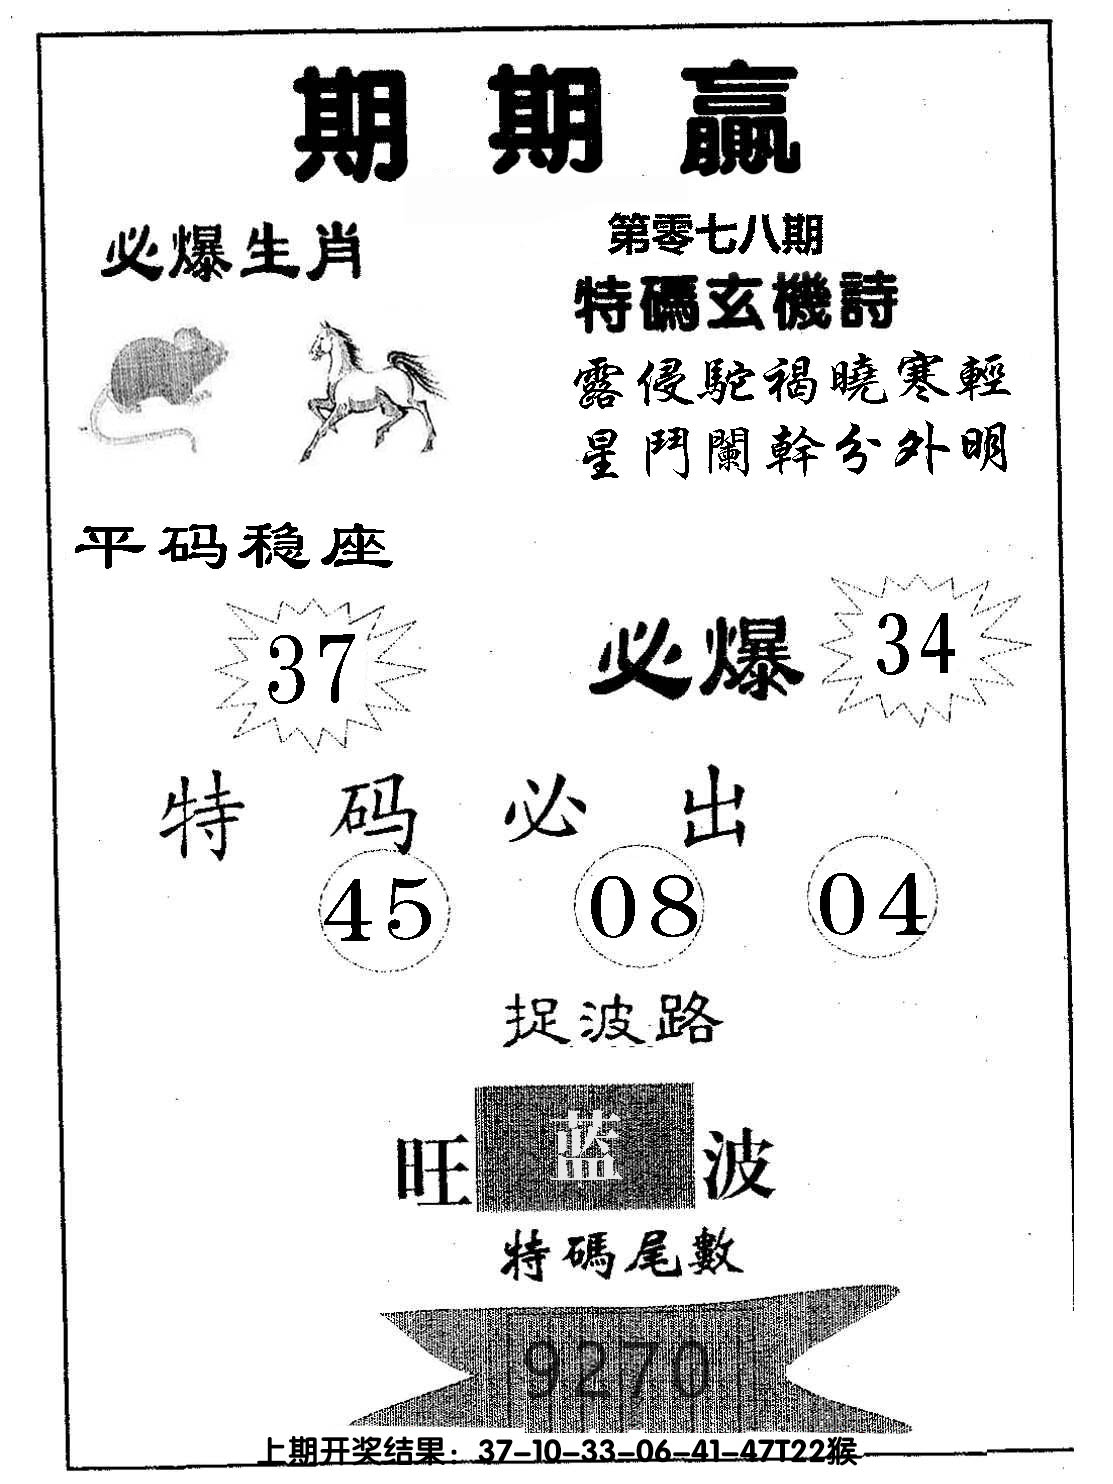 期期赢
必爆生肖
第零七八期
特碼玄機詩
露侵駝褐曉寒輕
星鬥闌幹分外明
平码稳座
37
必爆
34
特码必出
45 08 04
捉波路
旺蓝波
特碼尾數
9270
上期开奖结果：37-10-33-06-41-47T22猴